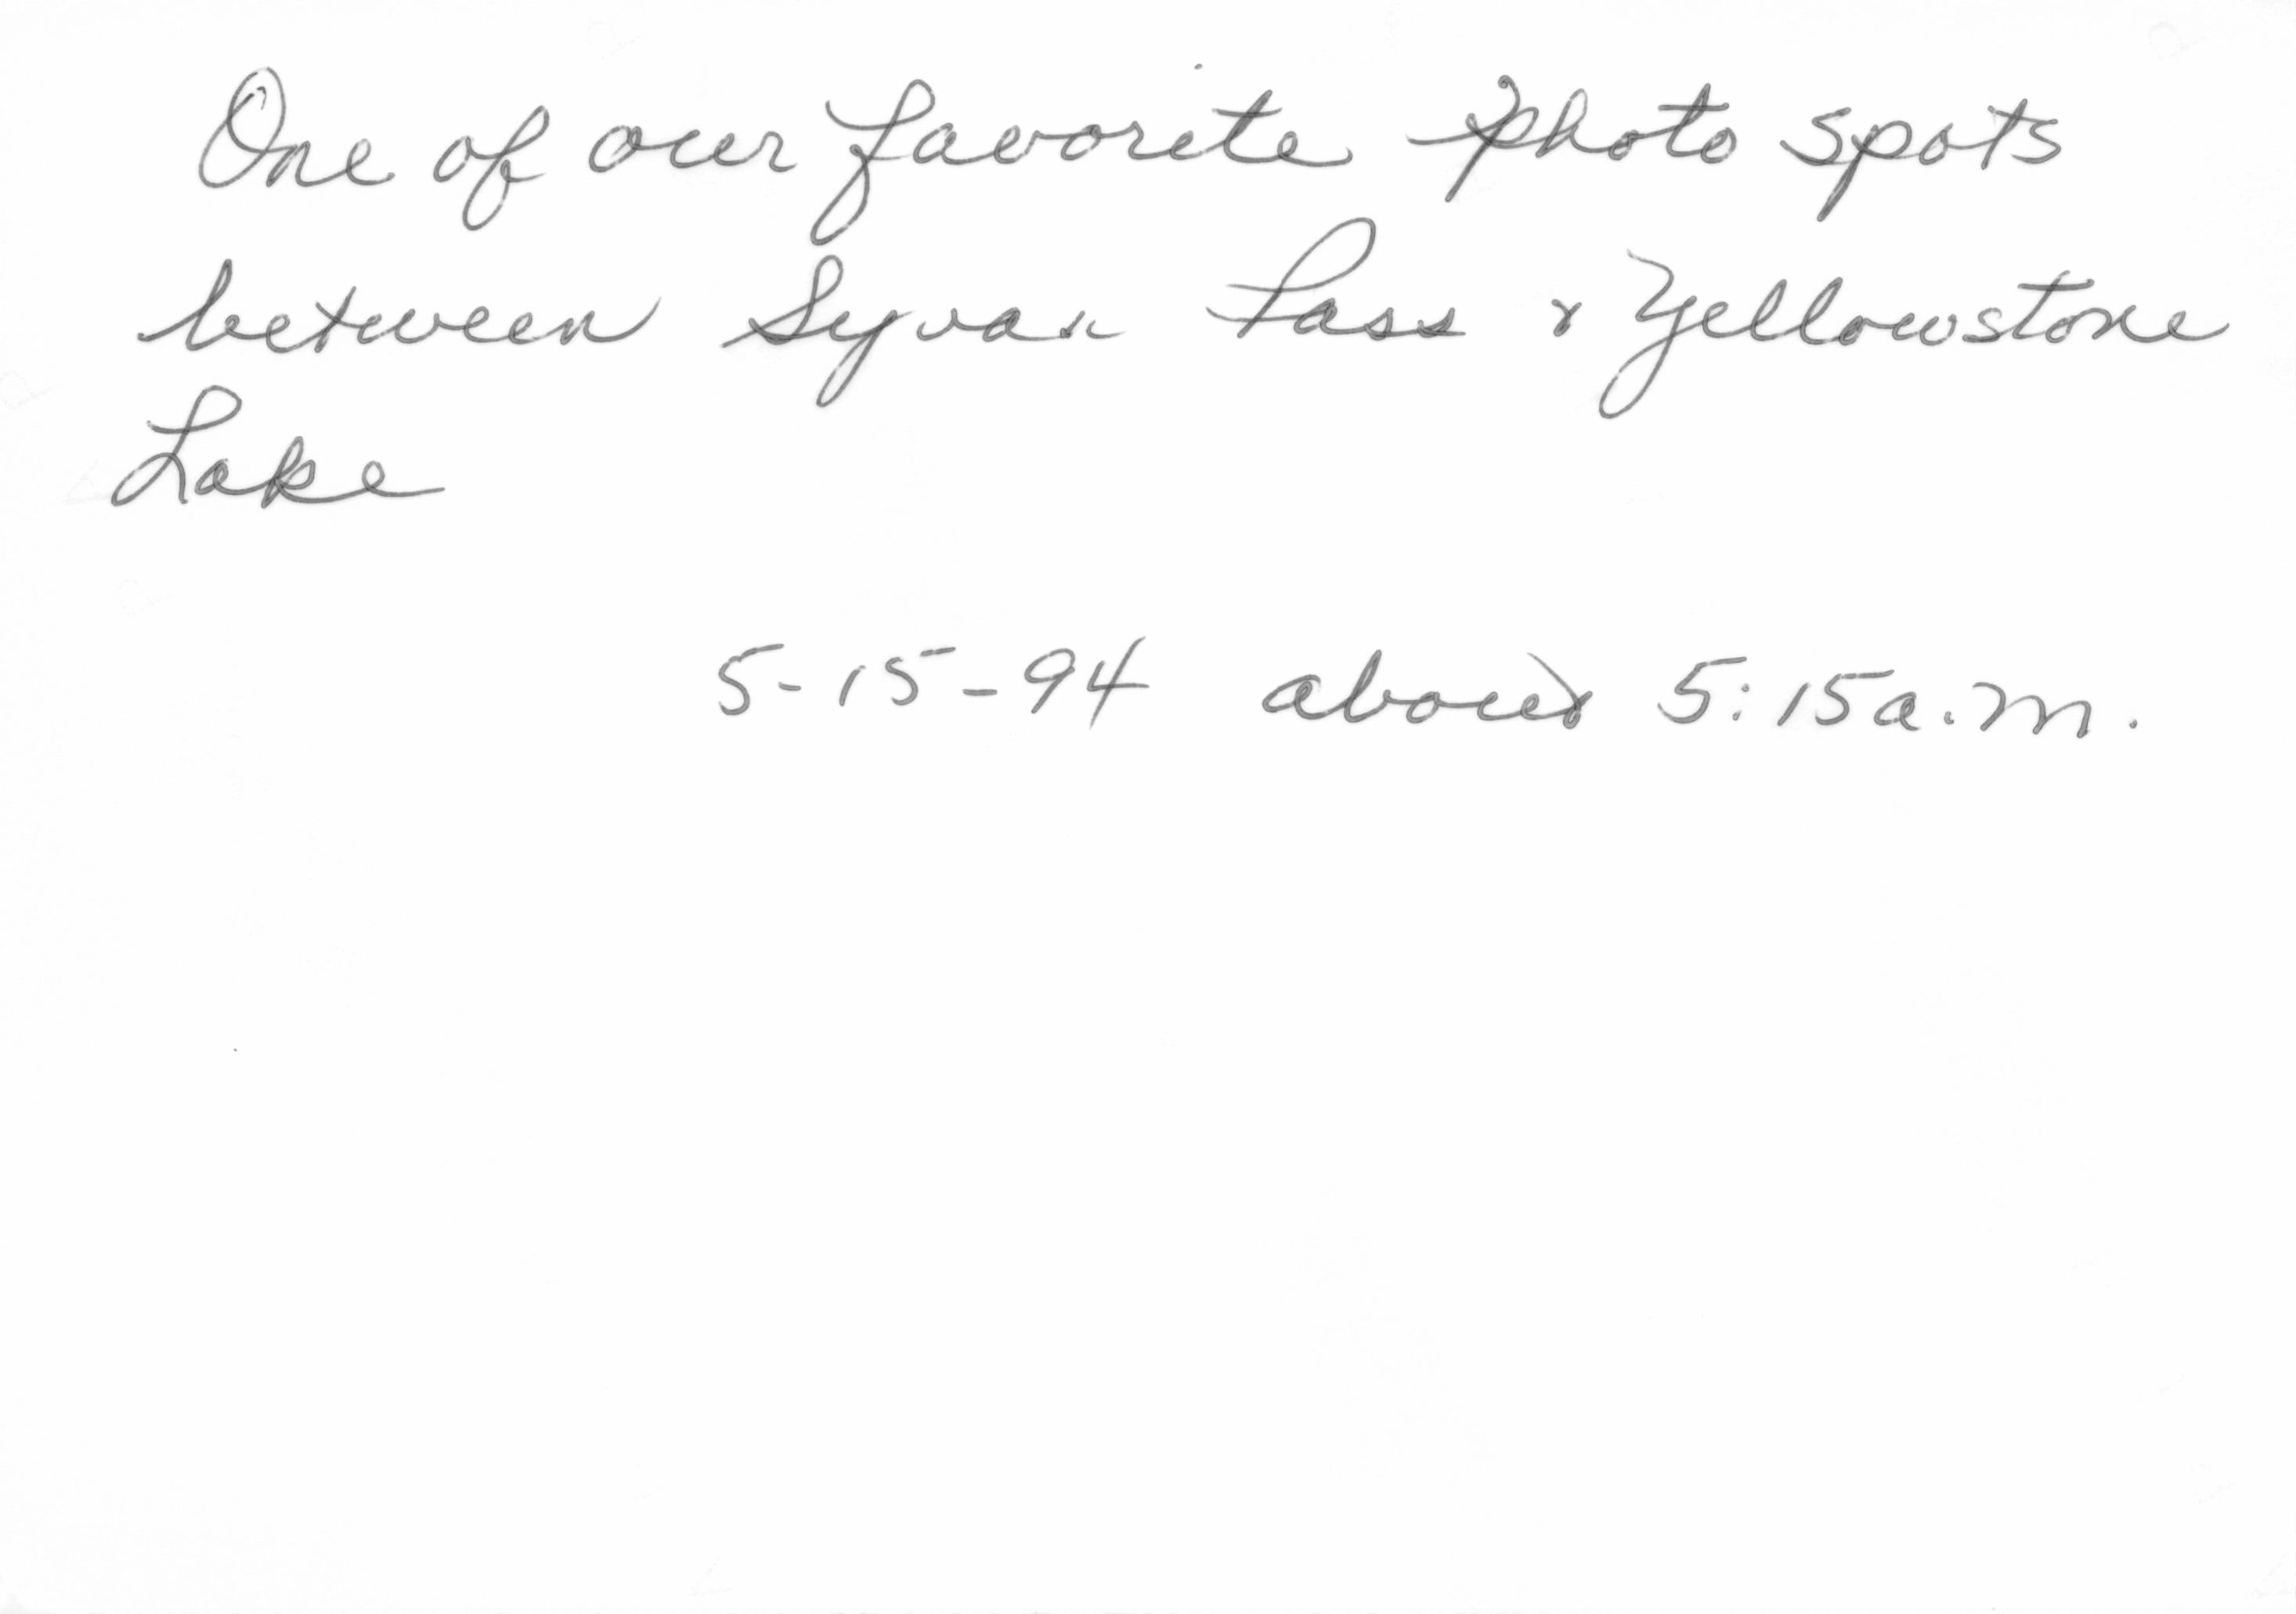 One of our favorite photo spots
between Syvan Pass & Yellowstone
Lake
5-15-94 about 5:15 a.m.